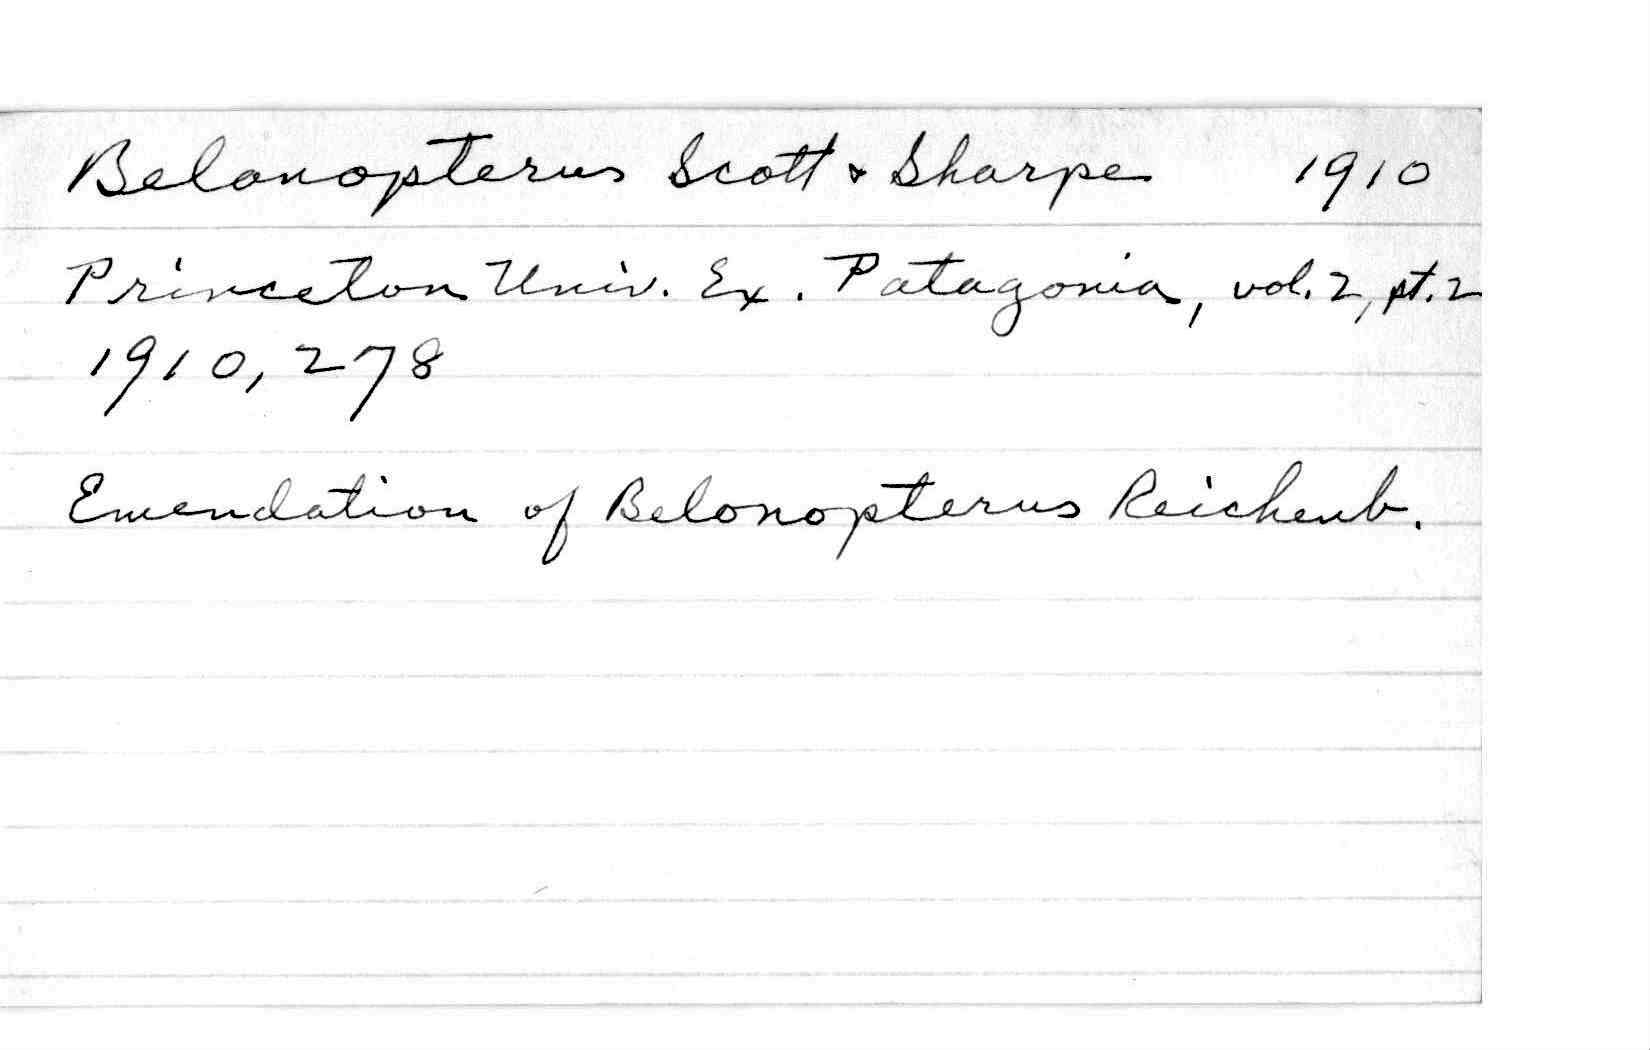 Belanopterus Scott & Sharpe 1910
Princeton Univ. Ex. Patagonia, vol. 2, pt. 2
1910, 278
Emendation of Belonopterus Reichenb.